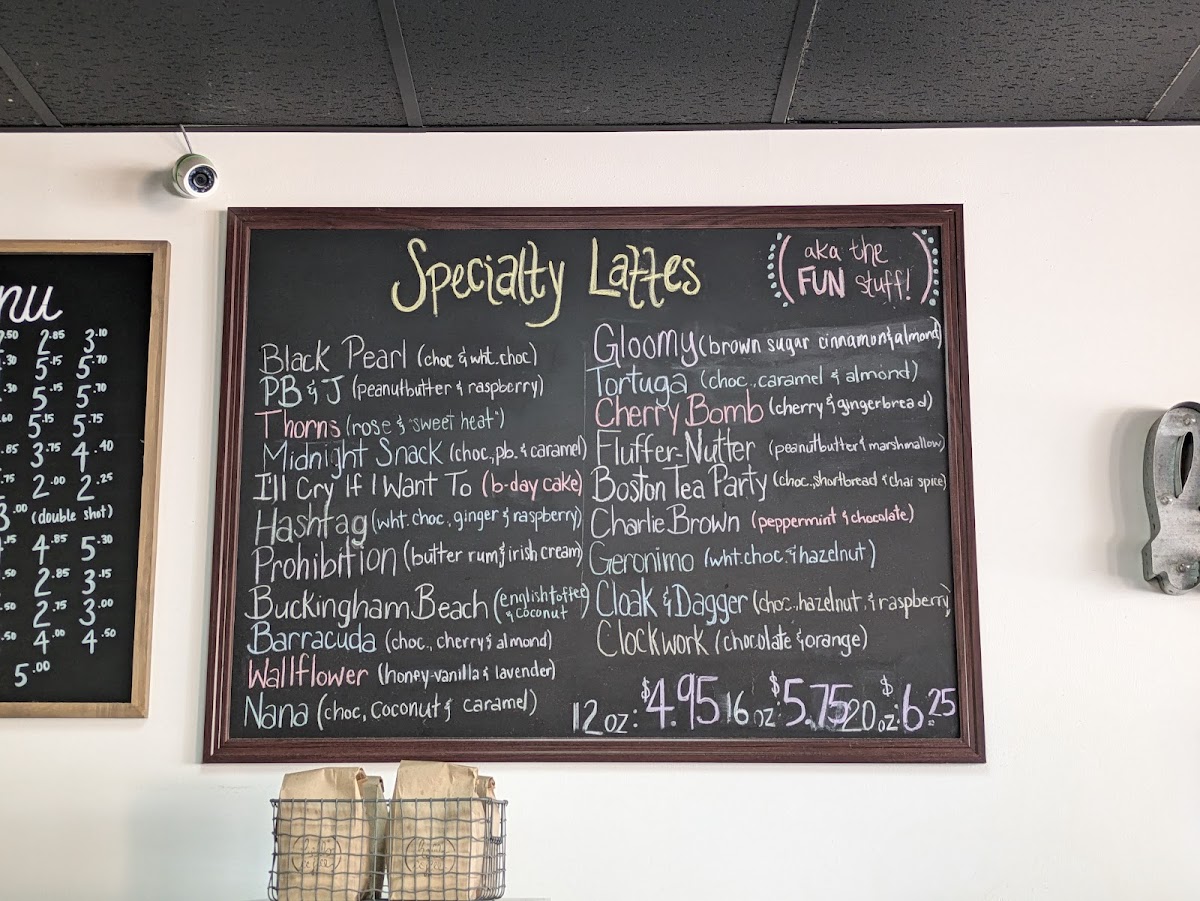 Specialty Lattes
(aka the FUN stuff!)
Black Pearl (choc & wht. choc)
PB & J (peanutbutter & raspberry)
Thorns (rose & "sweet heat")
Midnight Snack (choc., pb. & caramel)
I'll Cry If I Want To (b-day cake)
Hashtag (wht. choc, ginger & raspberry)
Prohibition (butter rum & irish cream)
Buckingham Beach (english toffee & coconut)
Barracuda (choc., cherry & almond)
Wallflower (honey-vanilla & lavender)
Nana (choc, coconut & caramel)
Gloomy (brown sugar cinnamon & almond)
Tortuga (choc., caramel & almond)
Cherry Bomb (cherry & gingerbread)
Fluffer-Nutter (peanutbutter & marshmallow)
Boston Tea Party (choc., shortbread & chai spice)
Charlie Brown (peppermint & chocolate)
Geronimo (wht. choc. & hazelnut)
Cloak & Dagger (choc., hazelnut, & raspberry)
Clockwork (chocolate & orange)
12 oz: $4.95 16 oz: $5.75 20 oz: $6.25
nu
.50 2.85 3.10
.30 5.15 5.70
.30 5.15 5.70
.60 5.15 5.75
.85 3.75 4.40
.75 2.00 2.25
3.00 (double shot)
.15 4.85 5.30
.50 2.85 3.15
.50 2.75 3.00
.50 4.00 4.50
5.00